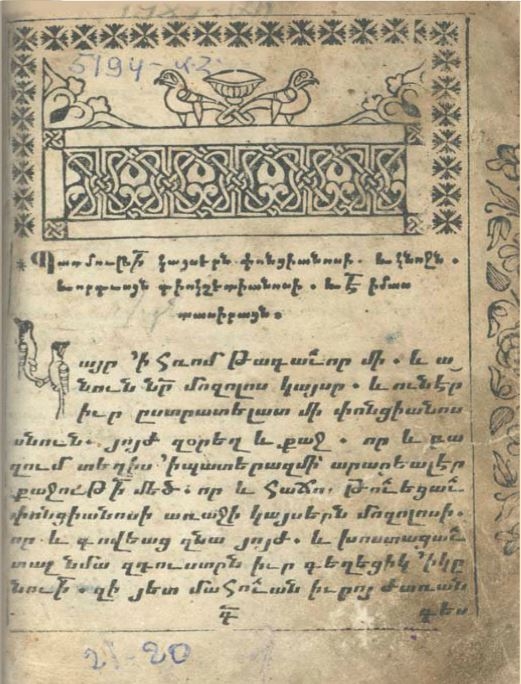 5194-
Պատմուրի՟ կայսերն փոնցիանոսի. և կնոջն.
և որդւոյն դիոկլետիանոսի. և է՟ իմաս
տասիրացն.
Կայր ՚ի Հռոմ Թագաւոր մի. և ա
նուն նր՟ մողոլոս կայսր. և ունէր
իւր ըստրատելատ մի փոնցիանոս
անուն. յոյժ զօրեղ և քաջ. որ և բա
զում տեղիս ՚ի պատերազմի արարեալ էր
քաջուԹի՟ մեծ. որ և Հաճոյ Թուեցաւ
փոնցիանոսի առաջի կայսերն մողոլոսի.
որ և գովեաց զնա յոյժ. և խոստացաւ
տալ նմա զդուստրն իւր գեղեցիկ ՚ի կը
նուի՟. զի յետ մաՀուան իւրոյ ժառան
գես
21-20